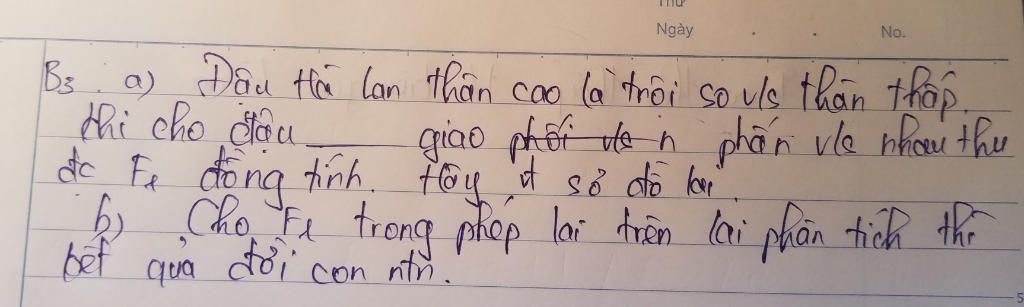 Thứ
Ngày . . No.
B3. a) Đậu Hà lan thân cao là trội so v/s thân thấp.
thì cho đậu ___ giao phối v/s n phấn v/s nhau thu
đc F1 đồng tính. Hãy vt sơ đồ lai.
b) Cho F1 trong phép lai trên lai phân tích thì
kết quả đời con ntn.